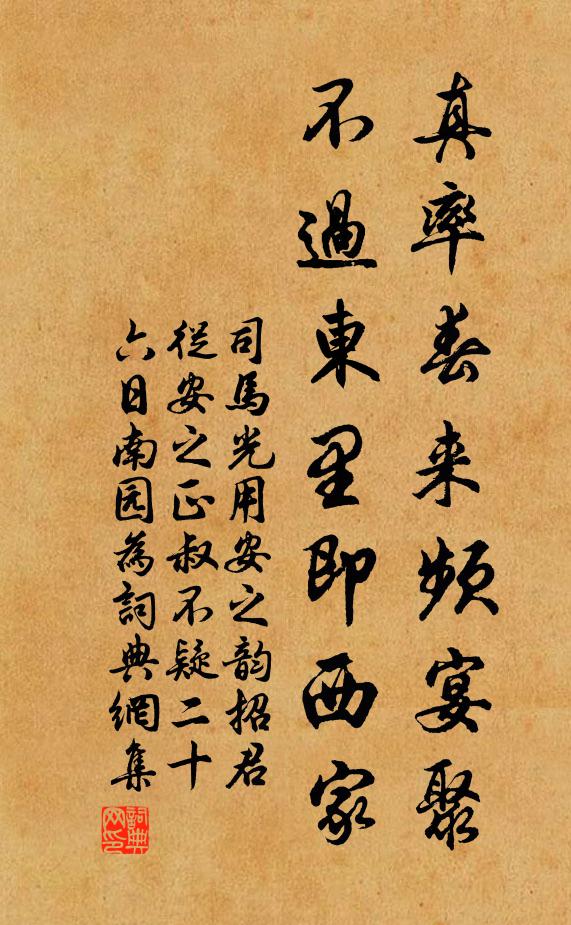 真率春来頻宴聚
不過東里即西家
司馬光用安之韵招君
從安之正叔不疑二十
六日南园為詞典網集
詞典
网印